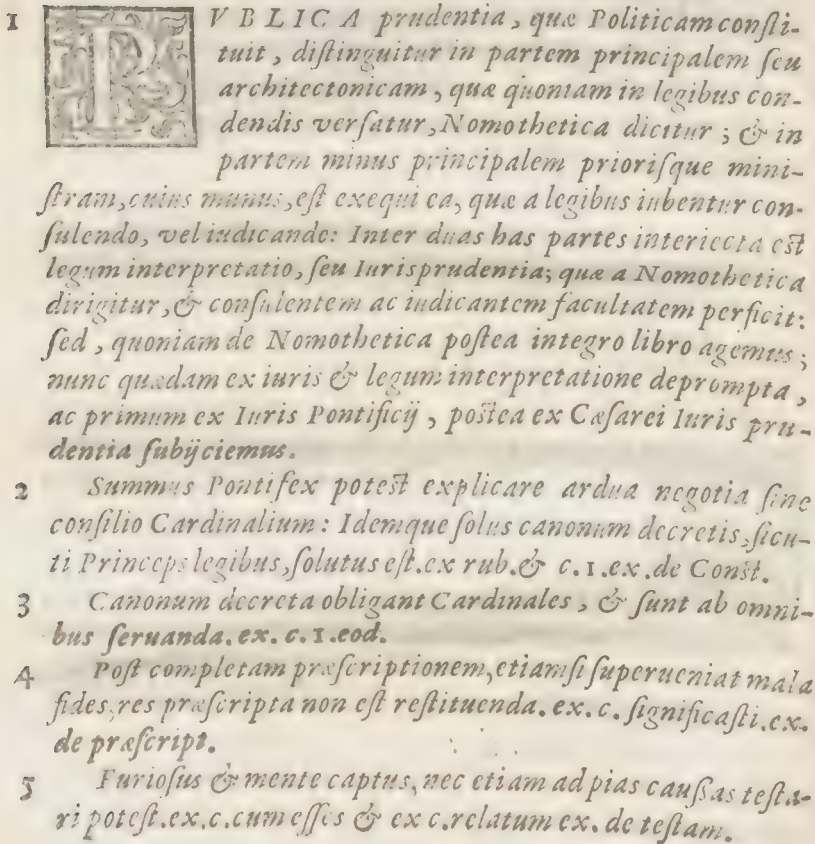 1 PVBLICA prudentia, quæ Politicam consti-
tuit, distinguitur in partem principalem seu
architectonicam, quæ quoniam in legibus con-
dendis versatur, Nomothetica dicitur; & in
partem minus principalem priorisque mini-
stram, cuius munus, est exequi ea, quæ a legibus iubentur con-
sulendo, vel iudicando: Inter duas has partes interiecta est
legum interpretatio, seu Iurisprudentia; quæ a Nomothetica
dirigitur, & consulentem ac iudicantem facultatem perficit:
sed, quoniam de Nomothetica postea integro libro agemus;
nunc quædam ex iuris & legum interpretatione deprompta,
ac primum ex Iuris Pontificij, postea ex Cæsarei Iuris pru-
dentia subijciemus.
2 Summus Pontifex potest explicare ardua negotia sine
consilio Cardinalium: Idemque solus canonum decretis, sicu-
ti Princeps legibus, solutus est. ex rub. & c. 1. ex. de Const.
3 Canonum decreta obligant Cardinales, & sunt ab omni-
bus seruanda. ex. c. 1. eod.
4 Post completam præscriptionem, etiamsi superueniat mala
fides, res præscripta non est restituenda. ex. c. significasti. ex.
de præscript.
5 Furiosus & mente captus, nec etiam ad pias caussas testa-
ri potest. ex. c. cum esses & ex c. relatum ex. de testam.